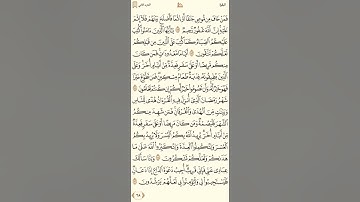 البقرة الجزء الثاني
فَمَنْ خَافَ مِن مُّوصٍ جَنَفًا أَوْ إِثْمًا فَأَصْلَحَ بَيْنَهُمْ فَلَآ إِثْمَ
عَلَيْهِ إِنَّ ٱللَّهَ غَفُورٌ رَّحِيمٌ ١٨٢ يَٰٓأَيُّهَا ٱلَّذِينَ ءَامَنُوا۟ كُتِبَ
عَلَيْكُمُ ٱلصِّيَامُ كَمَا كُتِبَ عَلَى ٱلَّذِينَ مِن قَبْلِكُمْ
لَعَلَّكُمْ تَتَّقُونَ ١٨٣ أَيَّامًا مَّعْدُودَٰتٍ فَمَن كَانَ
مِنكُم مَّرِيضًا أَوْ عَلَىٰ سَفَرٍ فَعِدَّةٌ مِّنْ أَيَّامٍ أُخَرَ وَعَلَى
ٱلَّذِينَ يُطِيقُونَهُۥ فِدْيَةٌ طَعَامُ مِسْكِينٍ فَمَن تَطَوَّعَ
خَيْرًا فَهُوَ خَيْرٌ لَّهُۥ وَأَن تَصُومُوا۟ خَيْرٌ لَّكُمْ إِن كُنتُمْ تَعْلَمُونَ ١٨٤
شَهْرُ رَمَضَانَ ٱلَّذِىٓ أُنزِلَ فِيهِ ٱلْقُرْءَانُ هُدًى لِّلنَّاسِ
وَبَيِّنَٰتٍ مِّنَ ٱلْهُدَىٰ وَٱلْفُرْقَانِ فَمَن شَهِدَ مِنكُمُ
ٱلشَّهْرَ فَلْيَصُمْهُ وَمَن كَانَ مَرِيضًا أَوْ عَلَىٰ سَفَرٍ
فَعِدَّةٌ مِّنْ أَيَّامٍ أُخَرَ يُرِيدُ ٱللَّهُ بِكُمُ ٱلْيُسْرَ وَلَا يُرِيدُ بِكُمُ
ٱلْعُسْرَ وَلِتُكْمِلُوا۟ ٱلْعِدَّةَ وَلِتُكَبِّرُوا۟ ٱللَّهَ عَلَىٰ مَا
هَدَىٰكُمْ وَلَعَلَّكُمْ تَشْكُرُونَ ١٨٥ وَإِذَا سَأَلَكَ
عِبَادِى عَنِّى فَإِنِّى قَرِيبٌ أُجِيبُ دَعْوَةَ ٱلدَّاعِ إِذَا دَعَانِ
فَلْيَسْتَجِيبُوا۟ لِى وَلْيُؤْمِنُوا۟ بِى لَعَلَّهُمْ يَرْشُدُونَ ١٨٦
٢٨